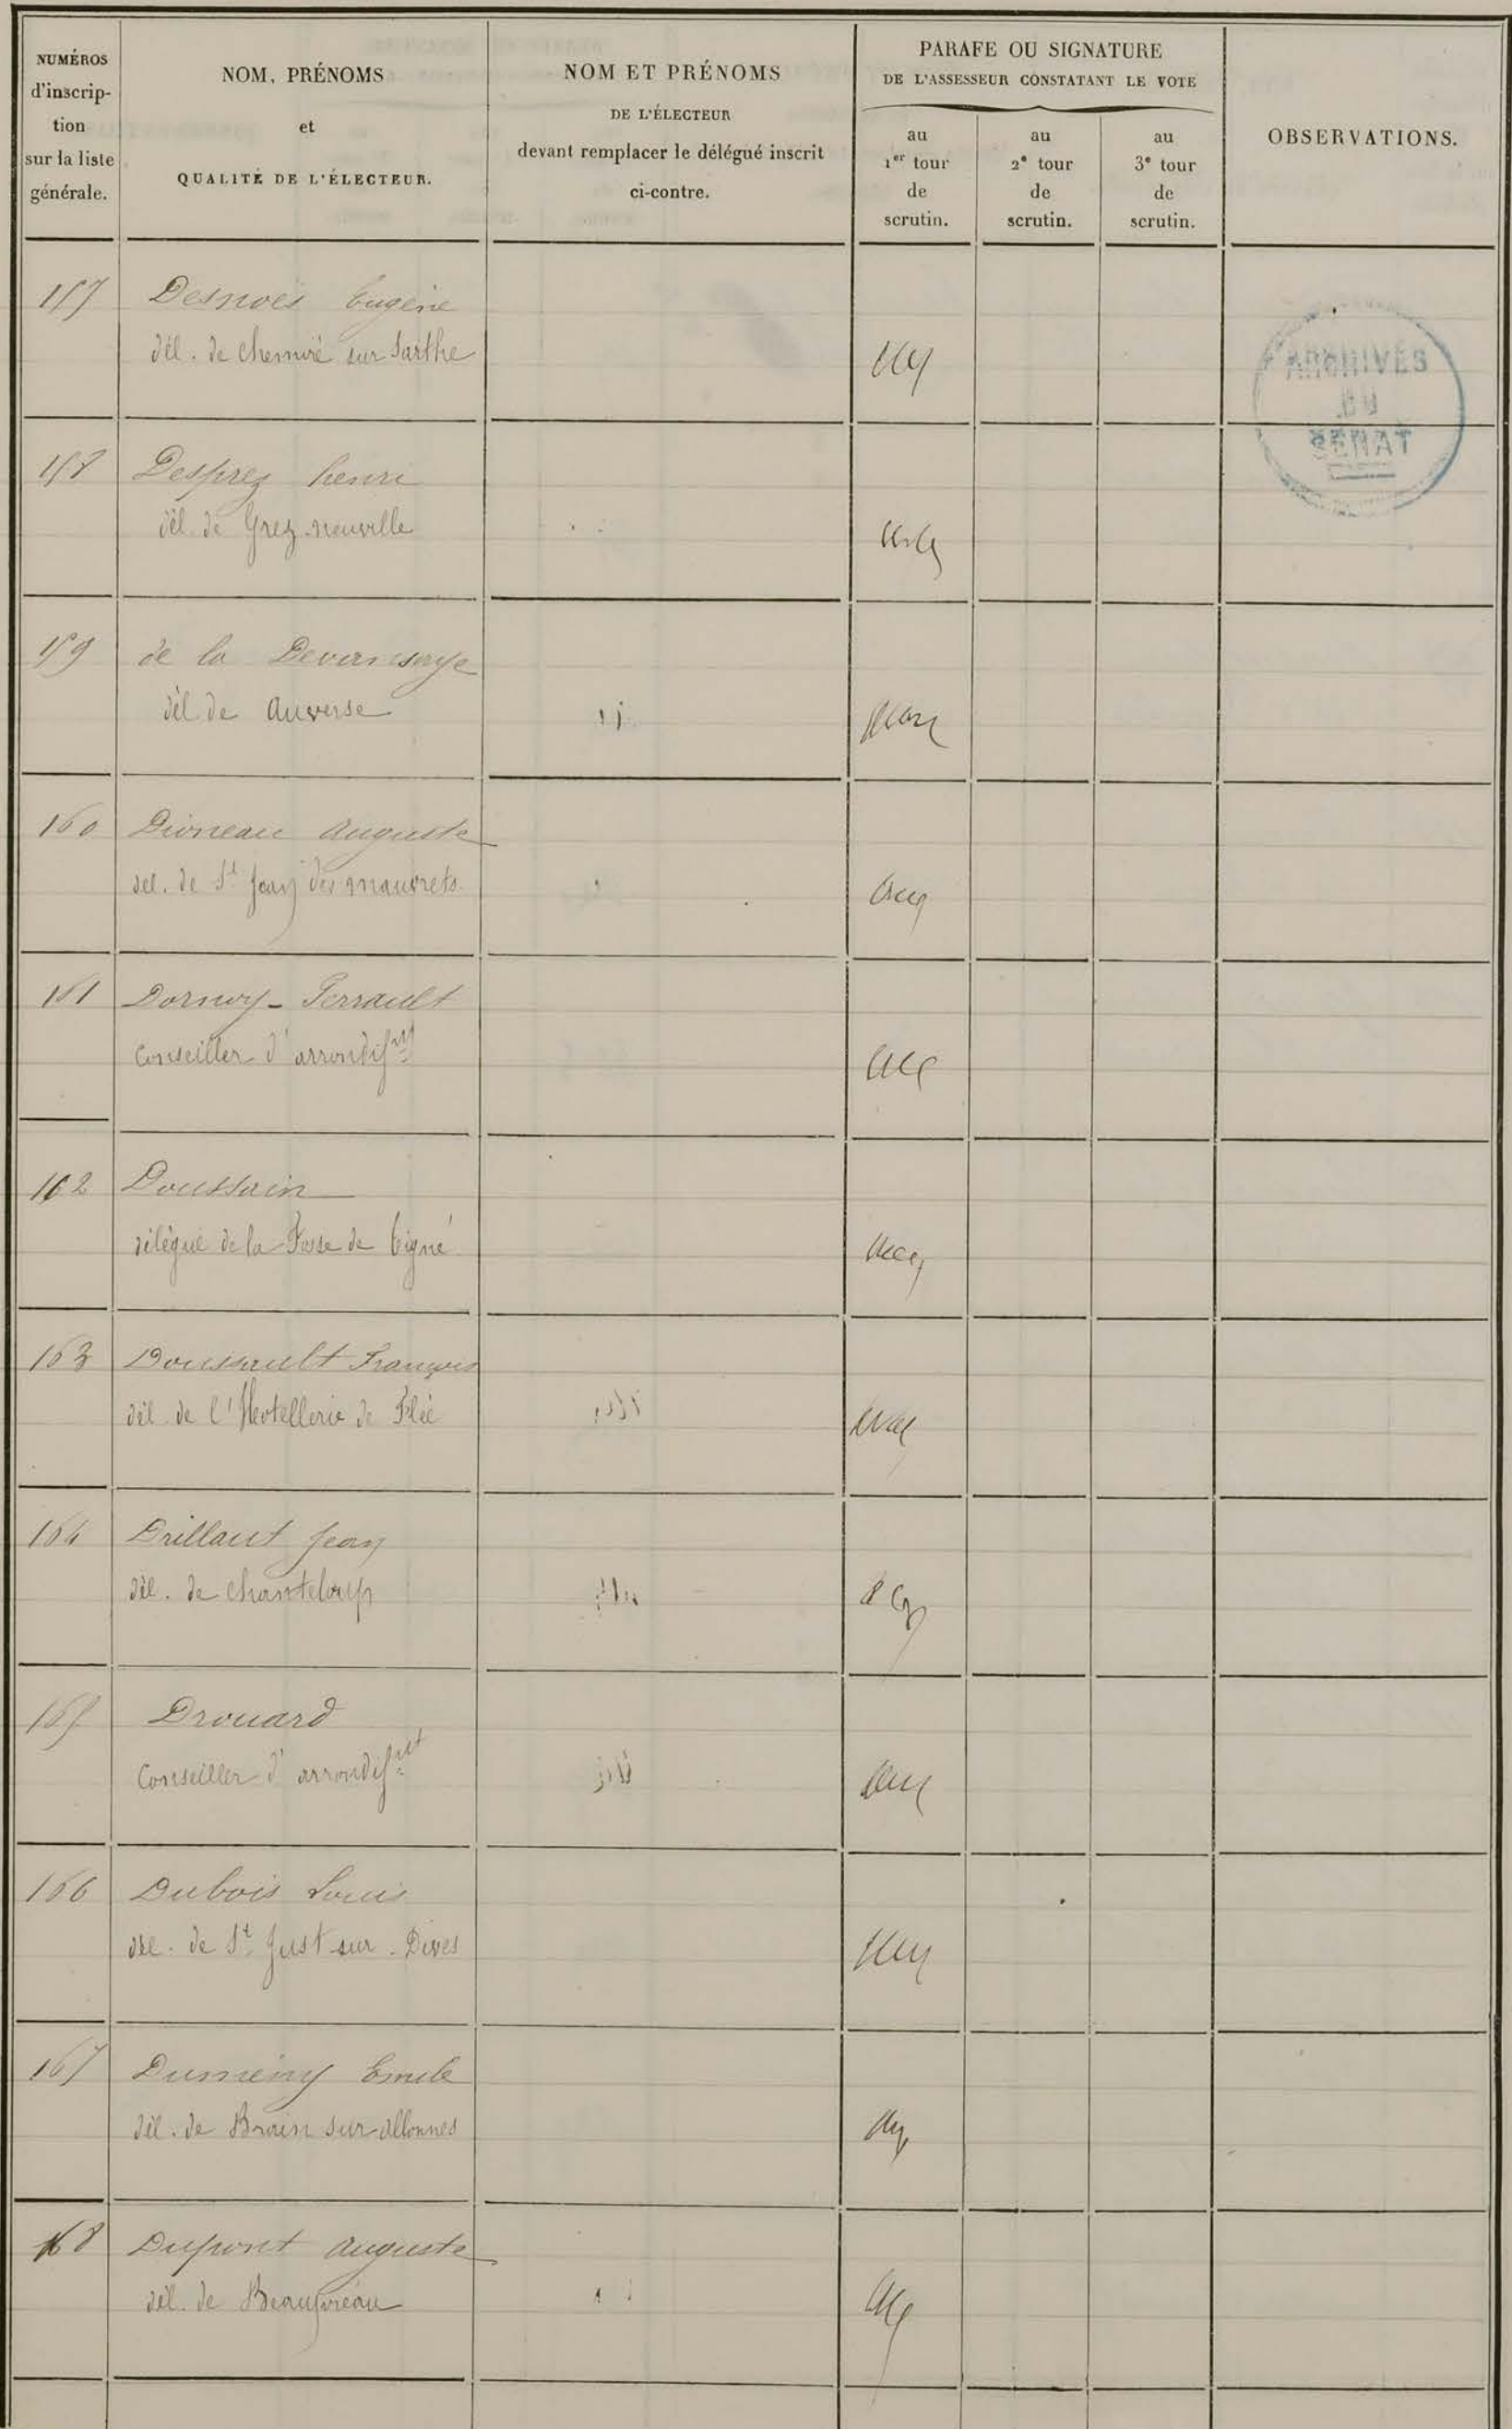 NUMÉROS
d'inscrip-
tion
sur la liste
générale.
NOM, PRÉNOMS
et
QUALITÉ DE L'ÉLECTEUR.
NOM ET PRÉNOMS
DE L'ÉLECTEUR
devant remplacer le délégué inscrit
ci-contre.
PARAFE OU SIGNATURE
DE L'ASSESSEUR CONSTATANT LE VOTE
au
1er tour
de
scrutin.
au
2e tour
de
scrutin.
au
3e tour
de
scrutin.
OBSERVATIONS.
157 Desnoës Eugène
dél. de Chemiré sur Sarthe
ARCHIVES
DU
SÉNAT
158 Desprez henri
dél. de Grez-neuville
159 de la Devansaye
dél. de Auverse
160 Dioneau Auguste
dél. de St Jean des mauvrets
161 Dornoy-Perrault
Conseiller d'arrondissmt
162 Doussain
délégué de la Fosse de Tigné
163 Doussault François
dél. de l'Hotellerie de Flée
164 Drillaut Jean
dél. de Chanteloup
165 Drouard
Conseiller d'arrondissmt
166 Dubois Louis
dél. de St Just sur Dives
167 Dumény Emile
dél. de Brain sur Allonnes
168 Dupont Auguste
dél. de Beaupréau